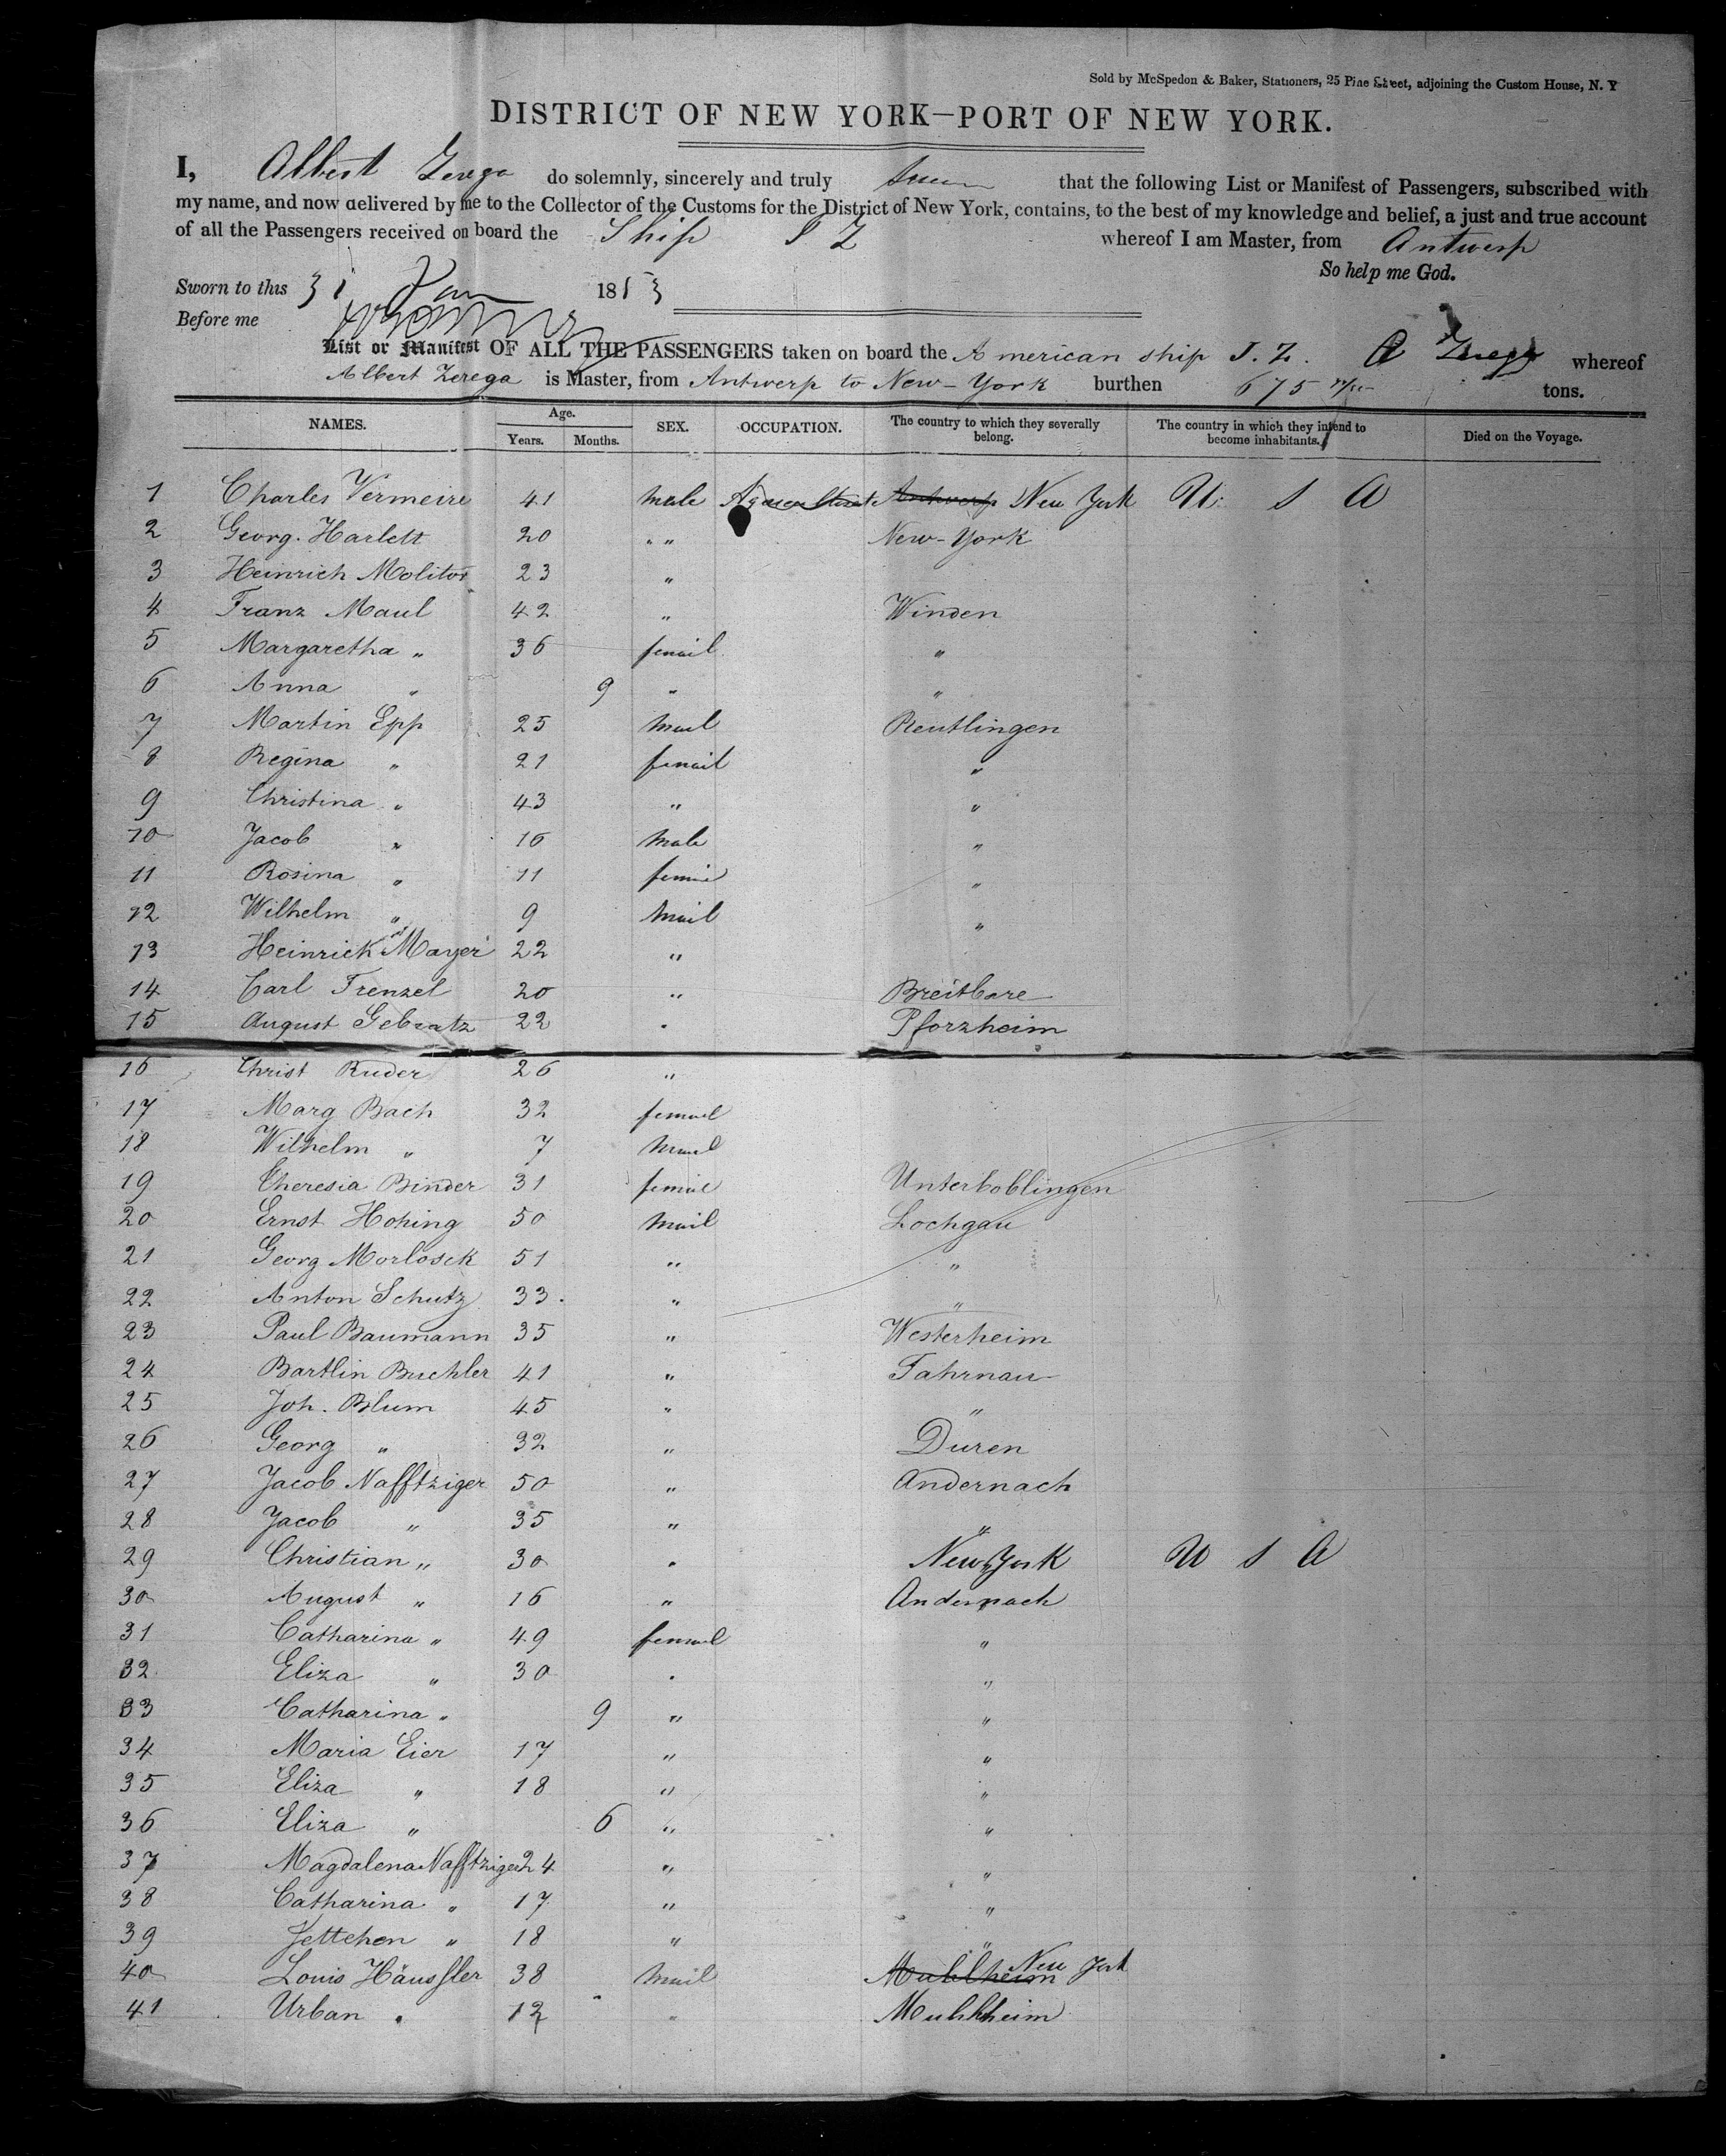 Sold by McSpedon & Baker, Stationers, 25 Pine Street, adjoining the Custom House, N. Y
DISTRICT OF NEW YORK—PORT OF NEW YORK.
I, Albert Zerega do solemnly, sincerely and truly that the following List or Manifest of Passengers, subscribed with
my name, and now delivered by me to the Collector of the Customs for the District of New York, contains, to the best of my knowledge and belief, a just and true account
of all the Passengers received on board the Ship J Z whereof I am Master, from Antwerp
So help me God.
Sworn to this 31 Jan 1853
Before me
List or Manifest OF ALL THE PASSENGERS taken on board the American ship J. Z. A Zerega whereof
Albert Zerega is Master, from Antwerp to New-York burthen 675 tons.
NAMES. Age. Years. Months. SEX. OCCUPATION. The country to which they severally belong. The country in which they intend to become inhabitants. Died on the Voyage.
1 Charles Vermeire 41 male Agriculturist Antwerp New York U. S A
2 Georg. Harlett 20 " " New-York
3 Heinrich Molitor 23 "
4 Franz Maul 42 " Winden
5 Margaretha " 36 femail "
6 Anna " 9 " "
7 Martin Epp 25 mail Reutlingen
8 Regina " 21 femail "
9 Christina " 43 " "
10 Jacob " 16 male "
11 Rosina " 11 femail "
12 Wilhelm " 9 mail "
13 Heinrick Mayer 22 "
14 Carl Frenzel 20 " Breitbare
15 August Gebratz 22 " Pforzheim
16 Christ Ruder 26 "
17 Marg Bach 32 femail
18 Wilhelm " 7 mail
19 Theresia Binder 31 femail Unterboblingen
20 Ernst Hohing 50 mail Lochgau
21 Georg Morlosck 51 " "
22 Anton Schutz 33. " "
23 Paul Baumann 35 " Westerheim
24 Bartlin Buchler 41 " Fahrnau
25 Joh. Blum 45 " "
26 Georg " 32 " Duren
27 Jacob Nafftziger 50 " Andernach
28 Jacob " 35 " "
29 Christian " 30 " New York U S A
30 August " 16 " Andernach
31 Catharina " 49 femail "
32 Eliza " 30 " "
33 Catharina " 9 " "
34 Maria Eier 17 " "
35 Eliza " 18 " "
36 Eliza " 6 " "
37 Magdalena Nafftziger 24 " "
38 Catharina " 17 " "
39 Jettchen " 18 " "
40 Louis Häussler 38 mail Muhlheim New York
41 Urban " 12 " Muhlheim